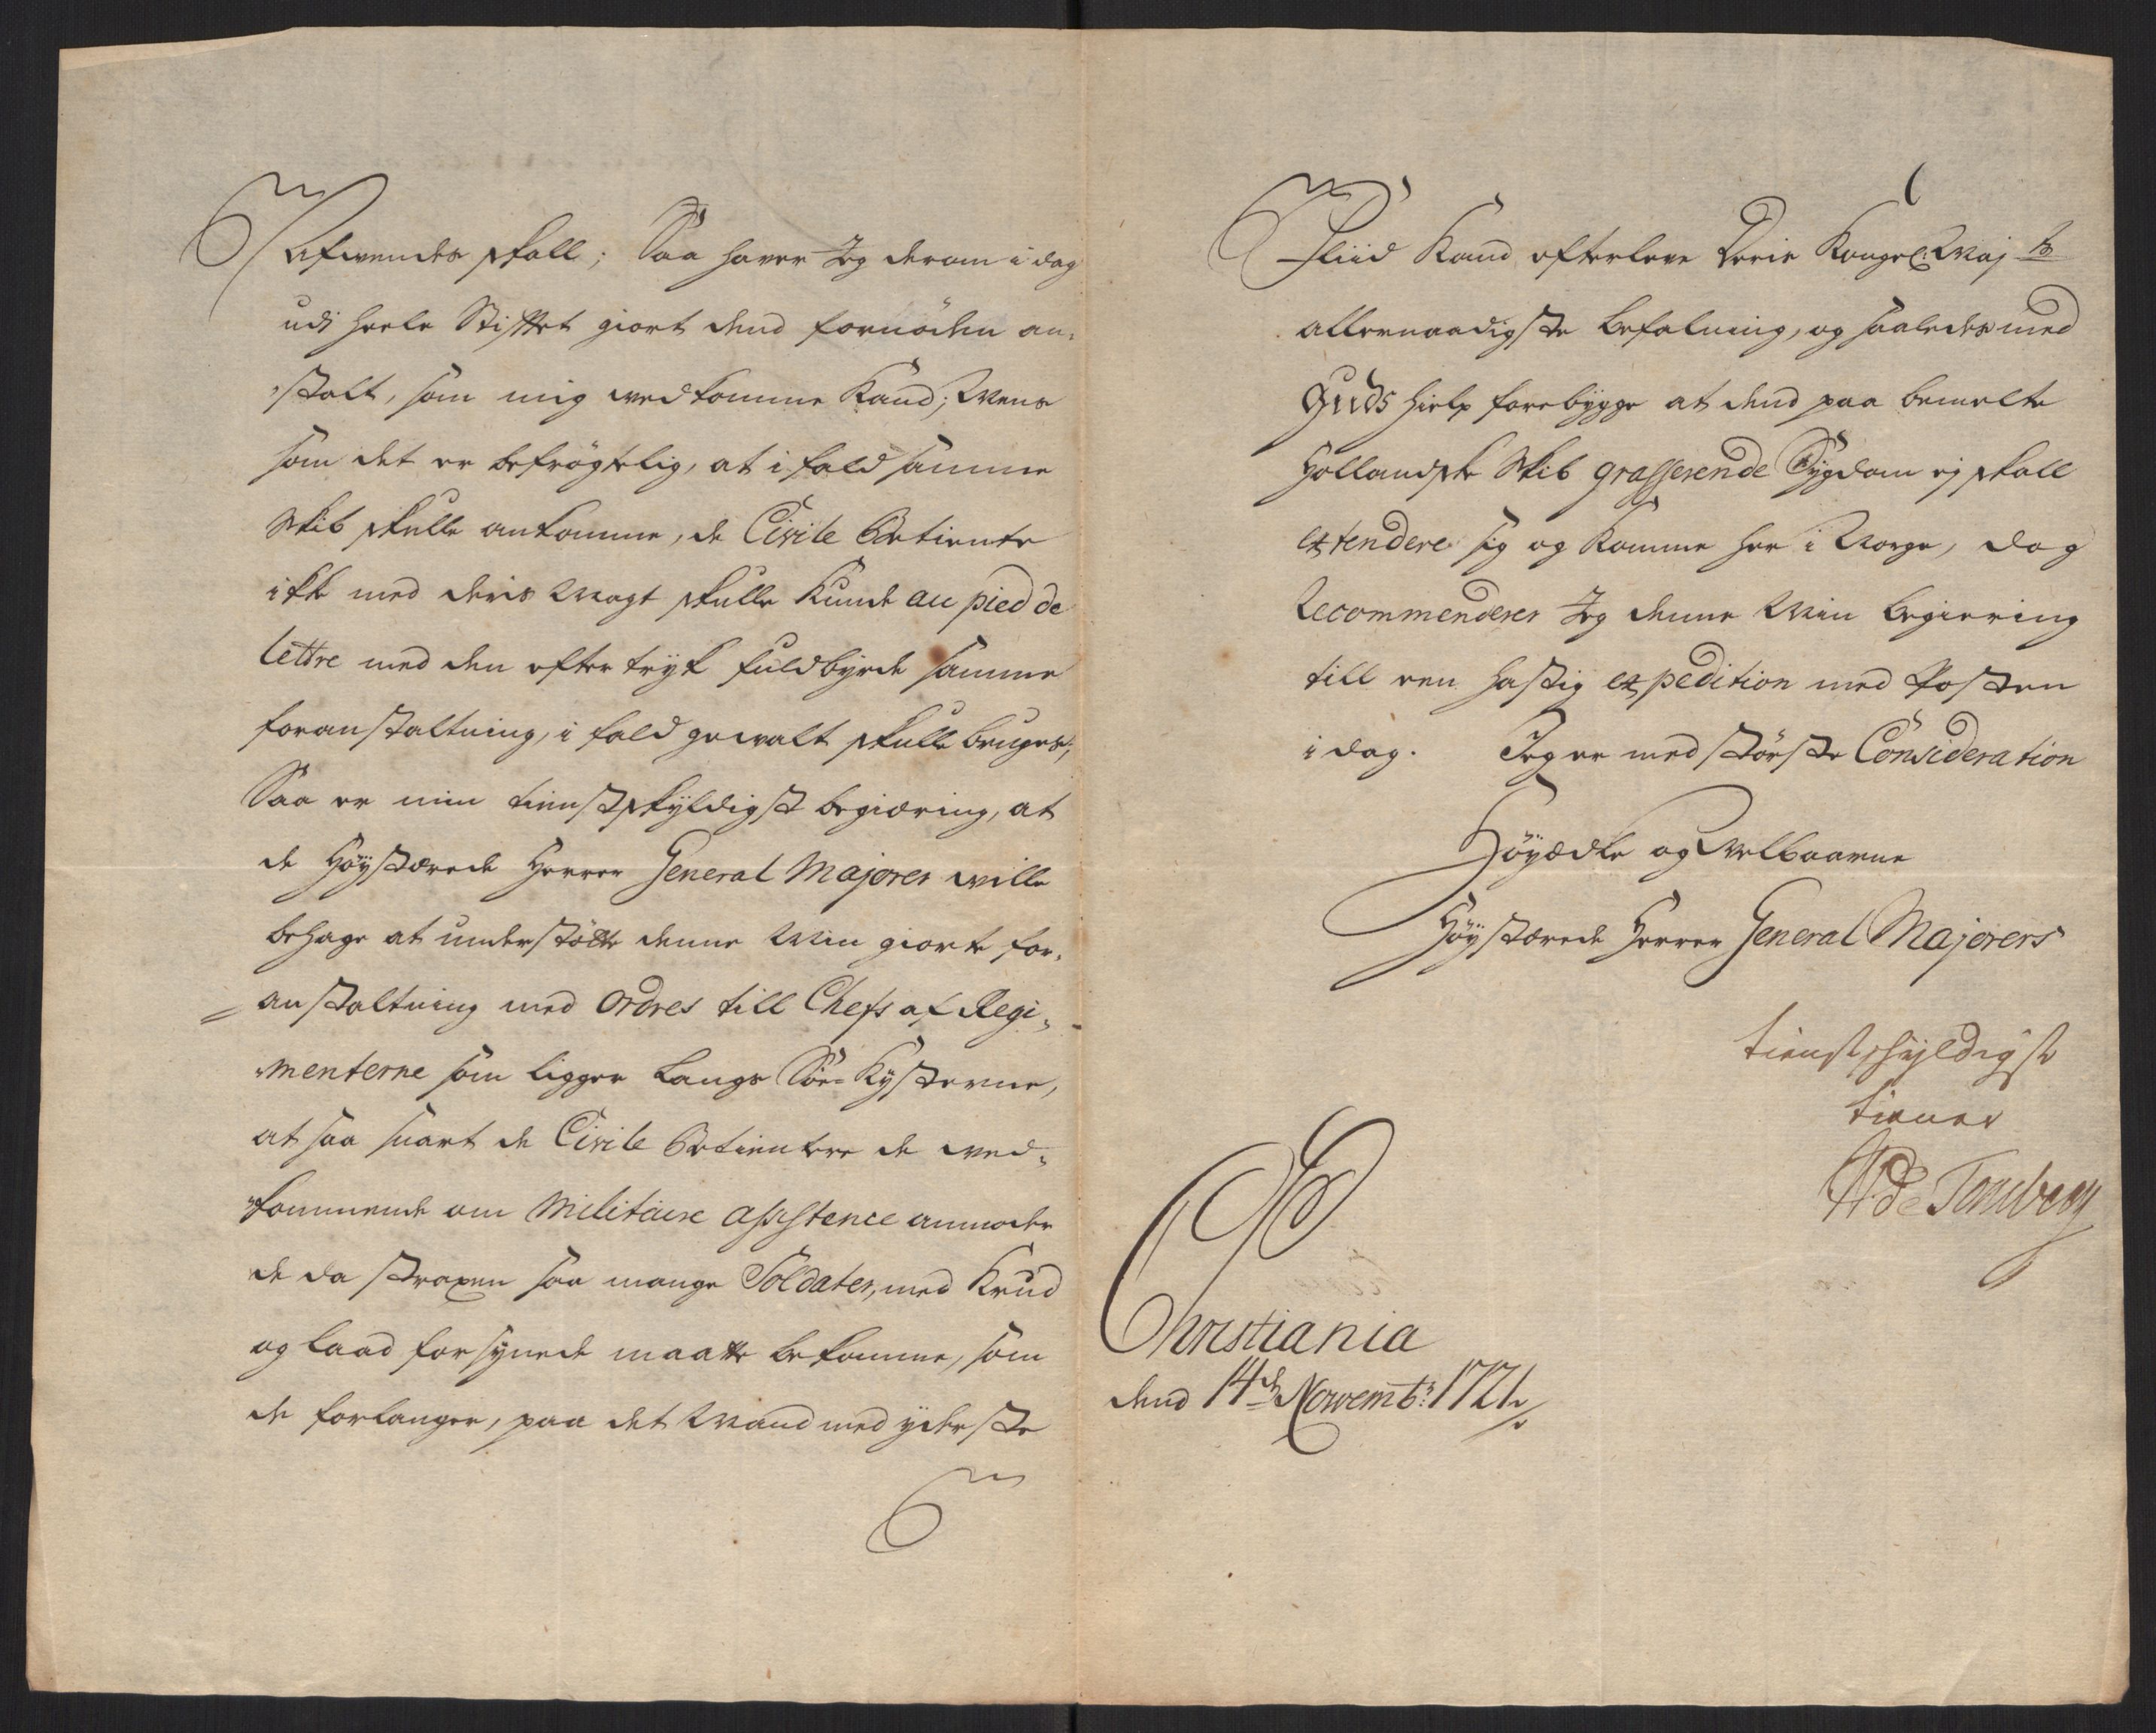 Afwendes skall; Saa haver Jeg derom i dag
udi heele Stiftet giort dend fornöden an-
stalt, som mig vedkomme Kand; Mens
som det er befrögtelig, at i fald samme
Skib skulle ankomme, de Civile Betiente
ikke med deris Magt skulle kunde au pied de
lettre med den eftertryk fuldbyrde samme
foranstaltning, i fald gewalt skulle bruges;
Saa er min tienstskyldigst begiæring, at
de Höystærede Herrer General Majorer wille
behage at understötte denne Min giorte for-
anstaltning med Ordres till Chefs af Regi-
menterne som ligger Langs Söe-Kysterne,
at saa snart de Civile Betientere de ved-
kommende om Militaire assistence anmoder
de da straxen saa mange Soldater, med Krud
og laad forsynede maatte bekomme, som
de forlanger, paa det Mand med yderste
Fliid Kand efterleve Deris Kongel: Maj ts
allernaadigste befalning, og saaledes med
Guds hielp forebygge at dend paa bemelte
Hollandske Skib grasserende Sygdom ej skall
extendere sig og komme her i Norge, dog
Recommenderer Jeg denne Min begiering
till een hastig expedition med Posten
i dag. Jeg er med störste Consideration
Höyædle og Velbaarne
Höystærede Herrer General Majorers
tienstskyldigste
tiener
de Tonsberg
Christiania
dend 14de Novembr: 1721